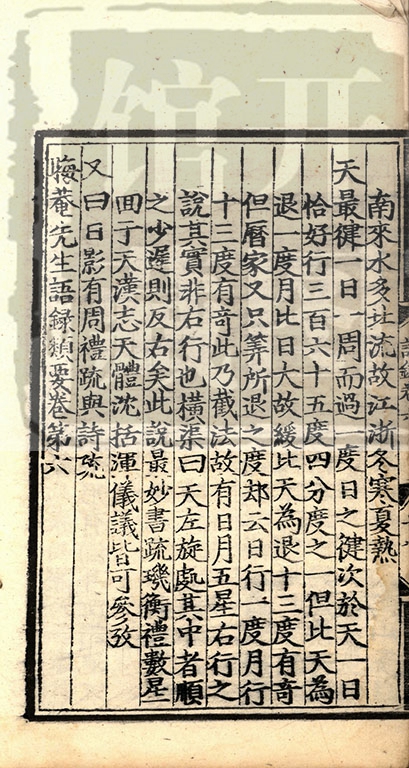 南來水多北流故江浙冬寒夏熱
天最健一日一周而過一度日之健次於天一日
恰好行三百六十五度四分度之一但比天為
退一度月比日大故緩比天為退十三度有奇
但曆家又只筭所退之度却云日行一度月行
十三度有奇此乃截法故有日月五星右行之
說其實非右行也橫渠曰天左旋處其中者順
之少遲則反右矣此說最妙書疏璣衡禮數星
回于天漢志天體沈括渾儀議皆可參攷
又曰日影有周禮疏與詩疏
晦菴先生語録類要卷第六